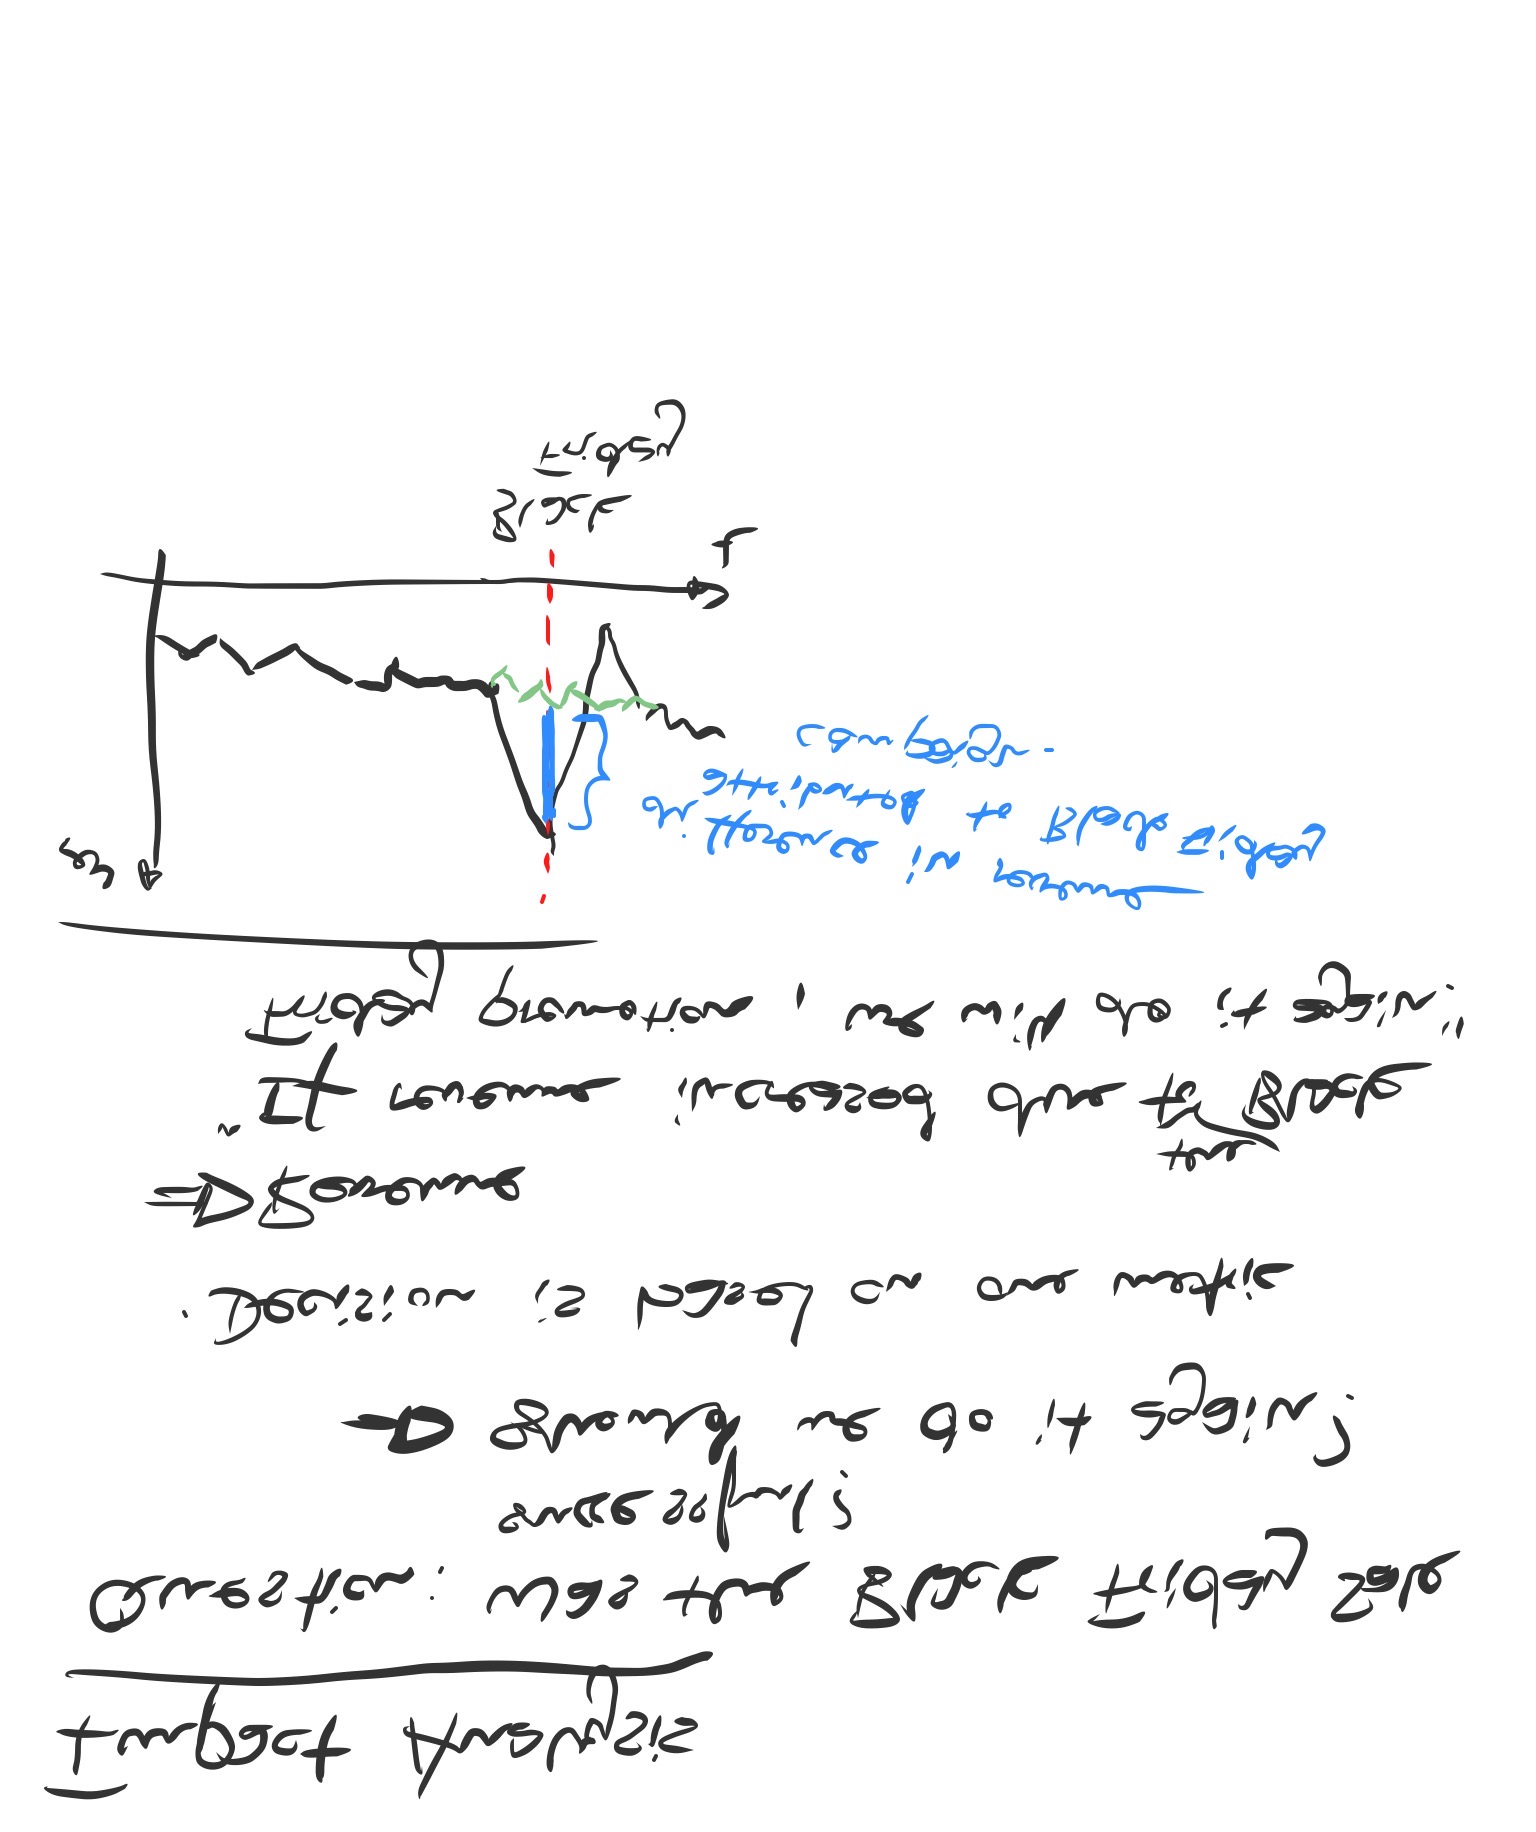 Impact Analysis
Question: Was the Black Friday Sale
successful?
=> Should we do it again?
· Decision is based on one metric
=> Revenue
the
"If revenue increased due to Black
Friday promotion, we will do it again."
rev
difference in revenue
attributed to Black Friday
campaign.
t
Black
Friday